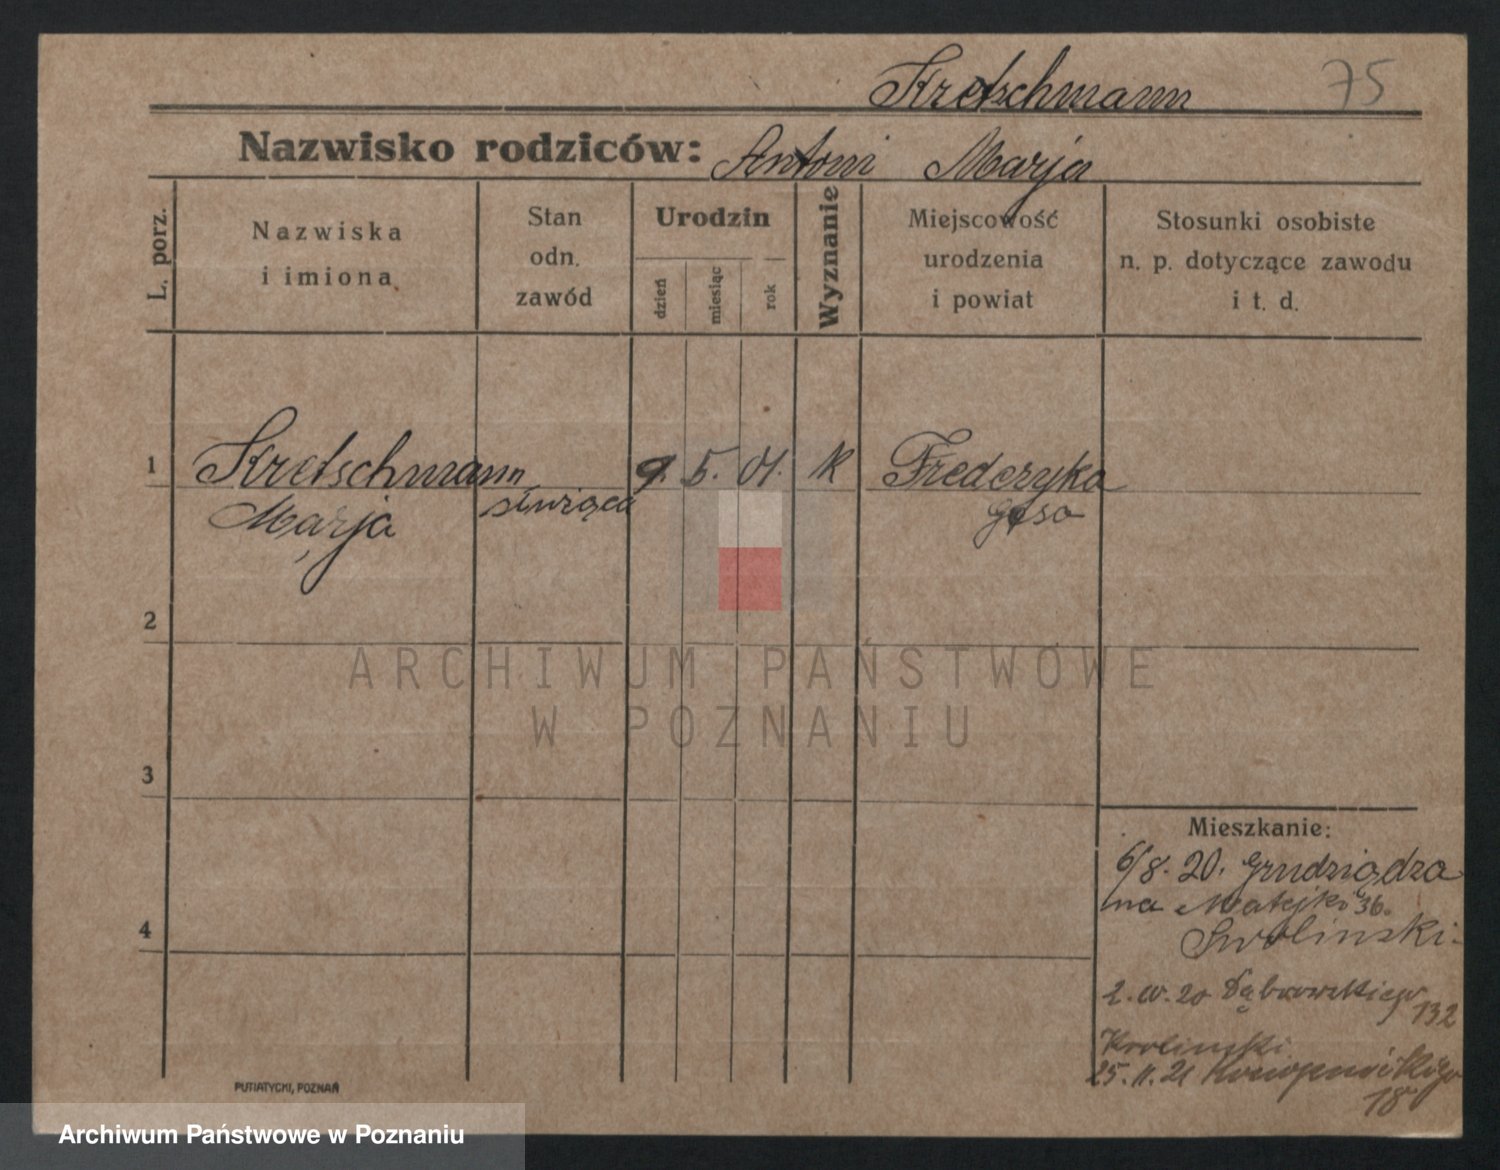 Kretschmann 75
Nazwisko rodziców: Antoni Marja
L. porz.
Nazwiska
i imiona
Stan
odn.
zawód
Urodzin
dzień
miesiąc
rok
Wyznanie
Miejscowość
urodzenia
i powiat
Stosunki osobiste
n. p. dotyczące zawodu
i t. d.
1 Kretschmann 9. 5. 01. K Frederyka
Marja służąca
2
ARCHIWUM PAŃSTWOWE
W POZNANIU
3
Mieszkanie:
6/8. 20. Grudziądza
na Matejki 36.
4
Swolinski
2. 20 Dąbrowskiego
132
25. 11. 21
18
PUTIATYCKI, POZNAŃ
Archiwum Państwowe w Poznaniu